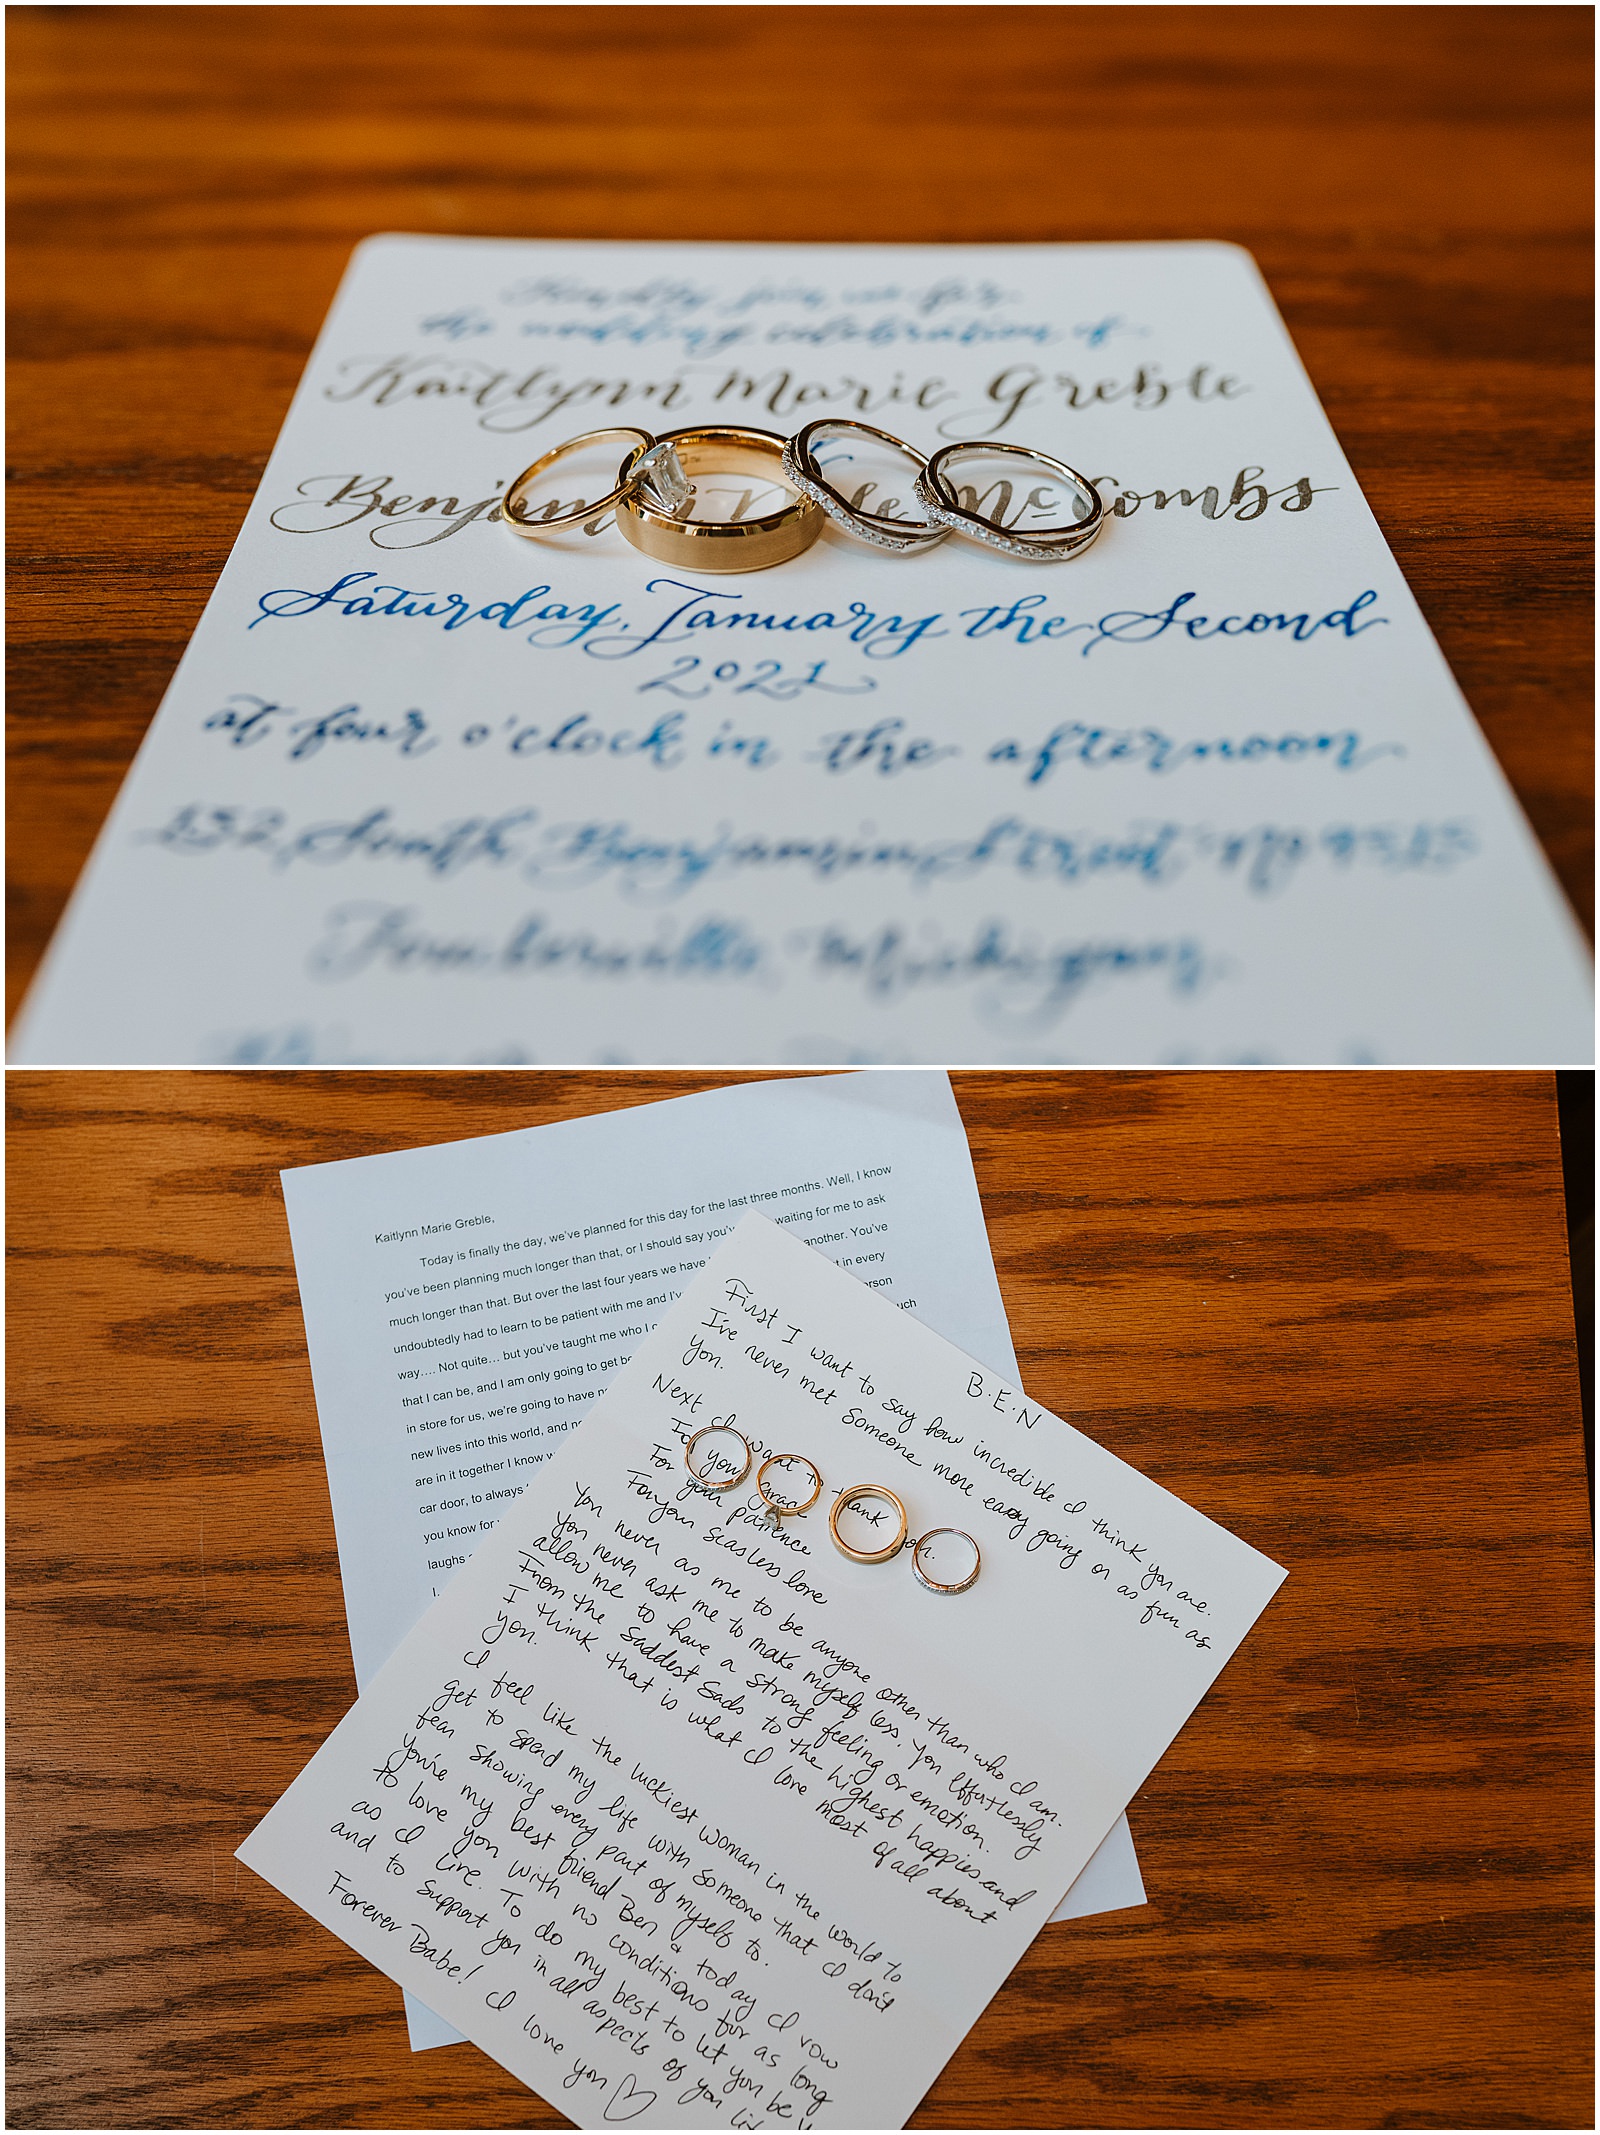 Kindly join us for
the wedding celebration of
Kaitlynn Marie Greble
Benjamin McCombs
Saturday, January the Second
2021
at four o'clock in the afternoon
South Benjamin Street
Michigan
Kaitlynn Marie Greble,
Today is finally the day, we've planned for this day for the last three months. Well, I know
you've been planning much longer than that, or I should say you've waiting for me to ask
much longer than that. But over the last four years we have another. You've
undoubtedly had to learn to be patient with me and I've in every
way.... Not quite... but you've taught me who I
that I can be, and I am only going to get
in store for us, we're going to have
new lives into this world, and
are in it together I know
car door, to always
you know for
laughs
I
B.E.N
First I want to say how incredible I think you are.
I've never met someone more easy going or as fun as
you.
Next I want to thank you.
For your grace
For your patience
For your seasless love
You never as me to be anyone other than who I am.
You never ask me to make myself less. You effortlessly
allow me to have a strong feeling or emotion.
From the saddest sads to the highest happies and
I think that is what I love most of all about
you.
I feel like the luckiest woman in the world to
get to spend my life with someone that I don't
fear showing every part of myself to.
You're my best friend Ben & today I vow
to love you with no conditions for as long
as I live. To do my best to let you be
and to support you in all aspects of you
Forever Babe! I love you